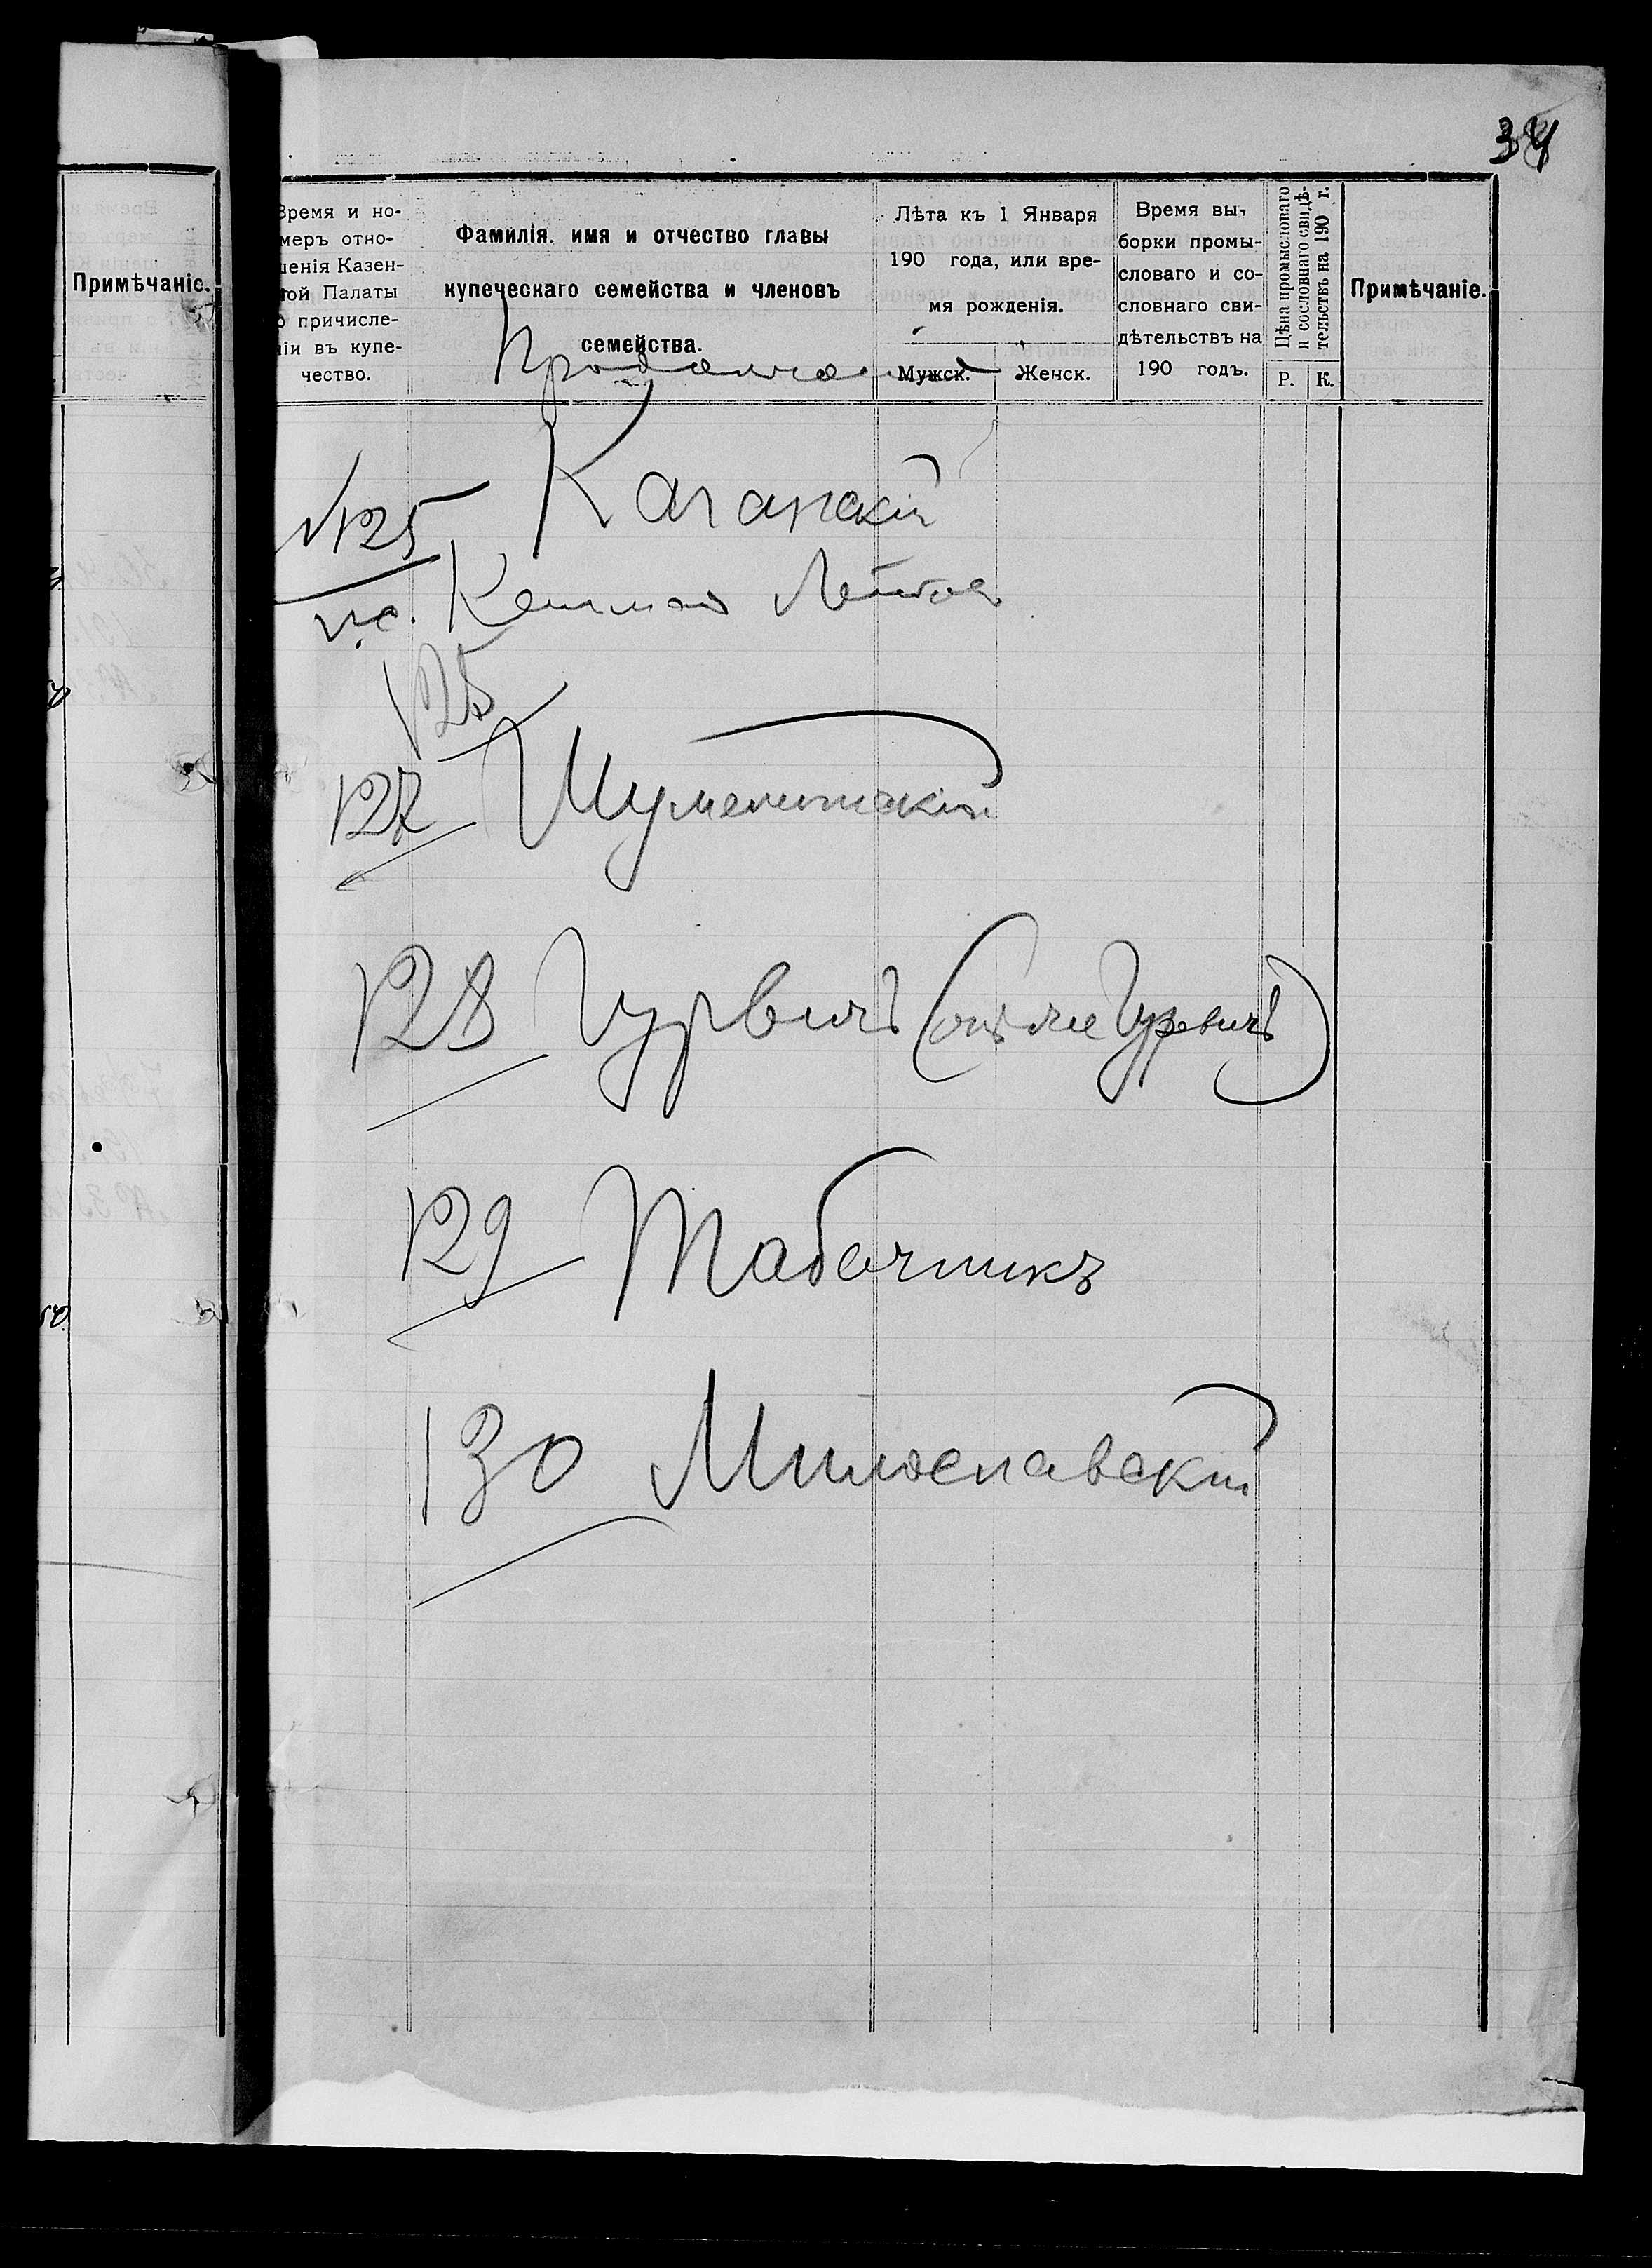 34
Примѣчаніе.
Время и но-
меръ отно-
шенія Казен-
ной Палаты
о причисле-
ніи въ купе-
чество.
Фамилія. имя и отчество главы
купеческаго семейства и членовъ
семейства.
Лѣта къ 1 Января
190 года, или вре-
мя рожденія.
Мужск. Женск.
Время вы-
борки промы-
словаго и со-
словнаго сви-
дѣтельствъ на
190 годъ.
Цѣна промысловаго
и сословнаго свидѣ-
тельствъ на 190 г.
Р. К.
Примѣчаніе.
125 Каганскій
125
127
128 Гурвичъ (онъ же Гуревичъ)
129 Табачникъ
130 Милославскій